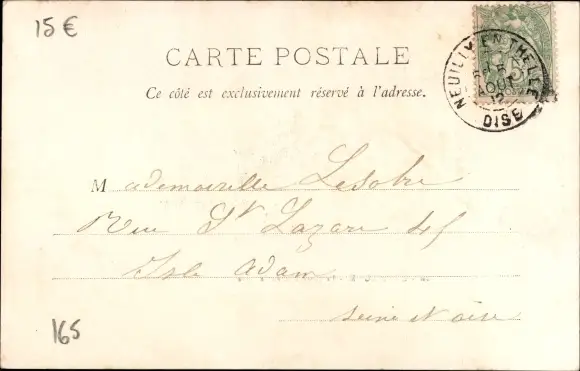 15 €
CARTE POSTALE
Ce côté est exclusivement réservé à l'adresse.
NEUILLY EN THELLE
AOUT
OISE
Mademoiselle Lesobre
Rue St Lazare 45
Isle Adam
Seine et Oise
165